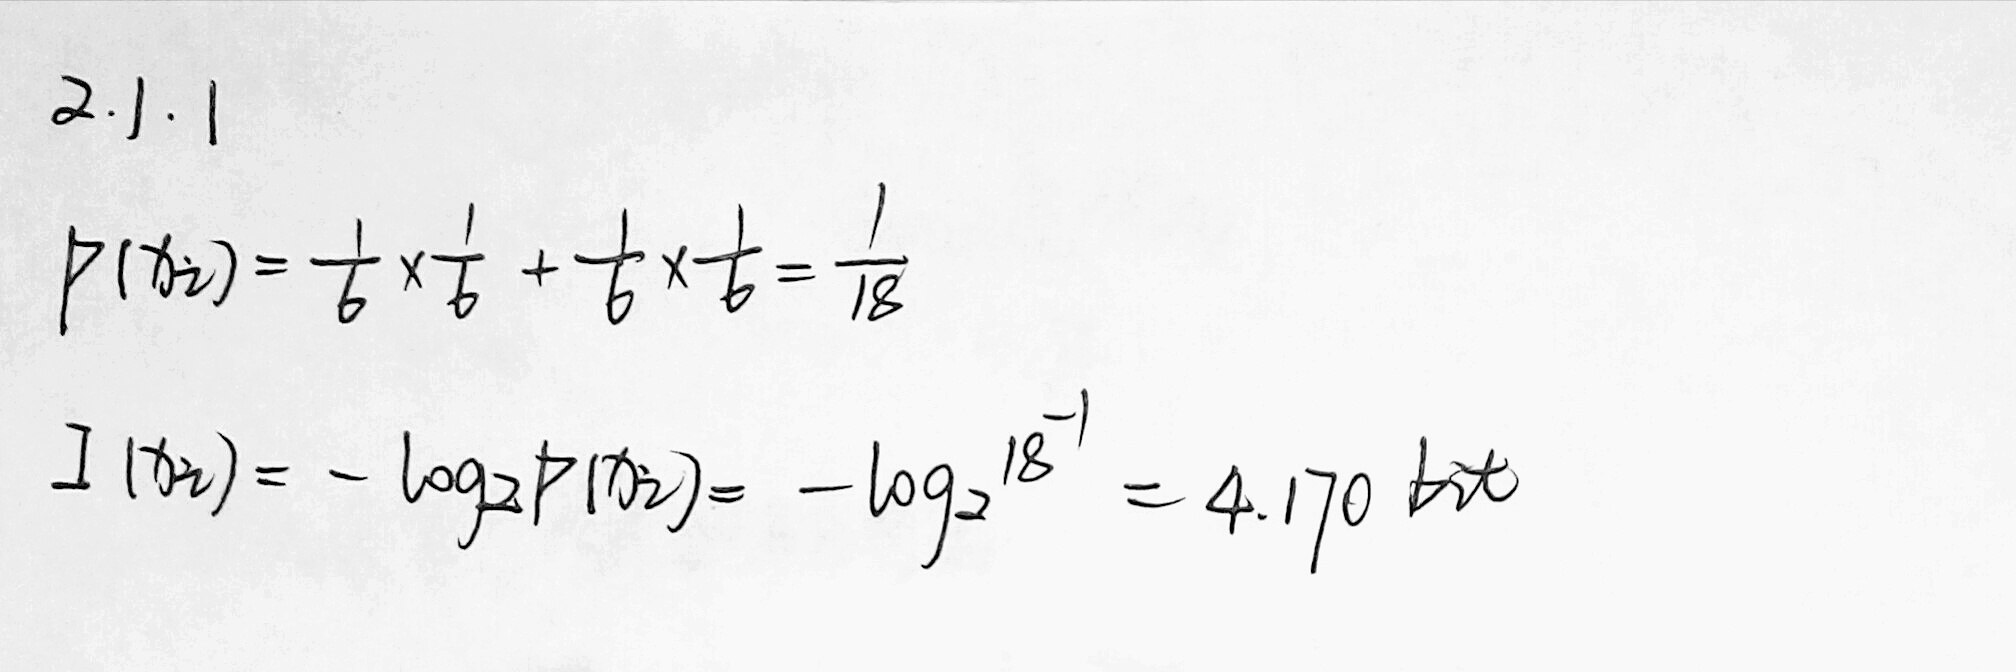 2.1.1
P(xi) = 1/6 × 1/6 + 1/6 × 1/6 = 1/18
I(xi) = - log₂P(xi) = - log₂18⁻¹ = 4.170 bit